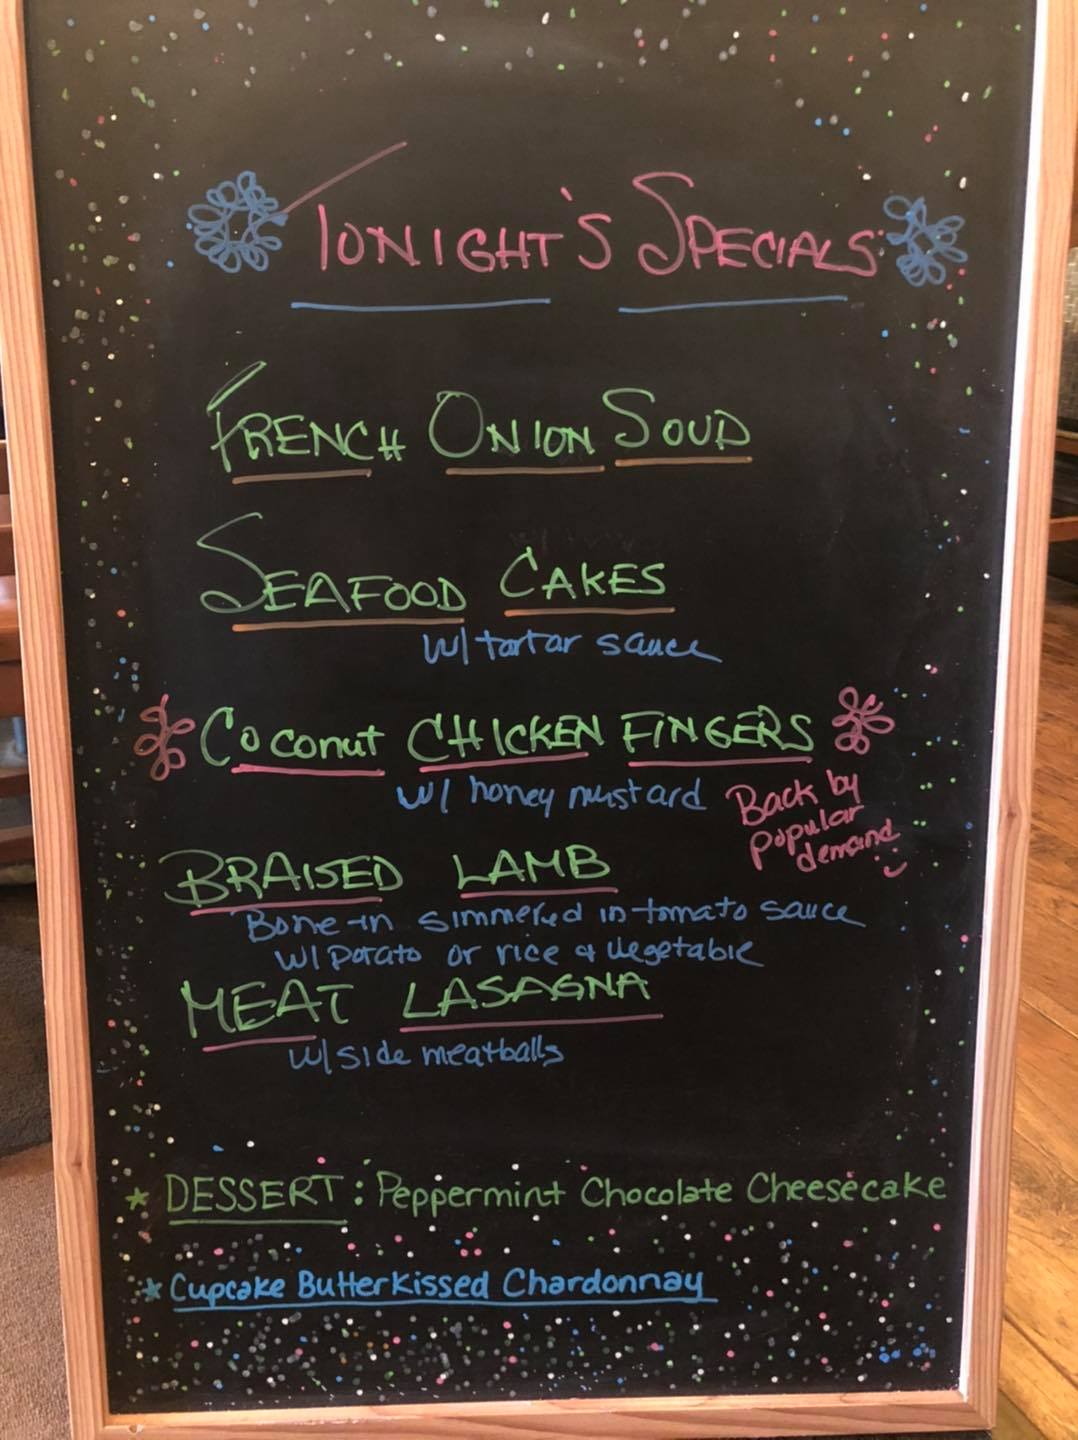 TONIGHT'S SPECIALS
FRENCH ONION SOUP
SEAFOOD CAKES
w/ tartar sauce
COCONUT CHICKEN FINGERS
w/ honey mustard
Back by
popular
demand
BRAISED LAMB
Bone-in simmered in tomato sauce
w/ potato or rice & vegetable
MEAT LASAGNA
w/ side meatballs
* DESSERT: Peppermint Chocolate Cheesecake
* Cupcake Butterkissed Chardonnay